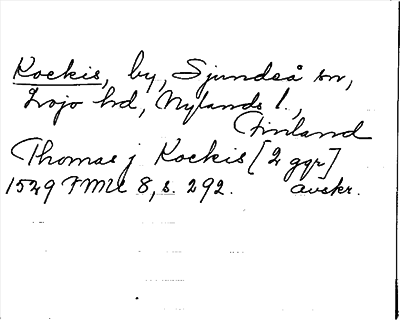 Kockis, by, Sjundeå sn,
Lojo hd, Nylands l.,
Finland
Thomas j Kockis [2 ggr]
1529 FMU 8, s. 292. avskr.